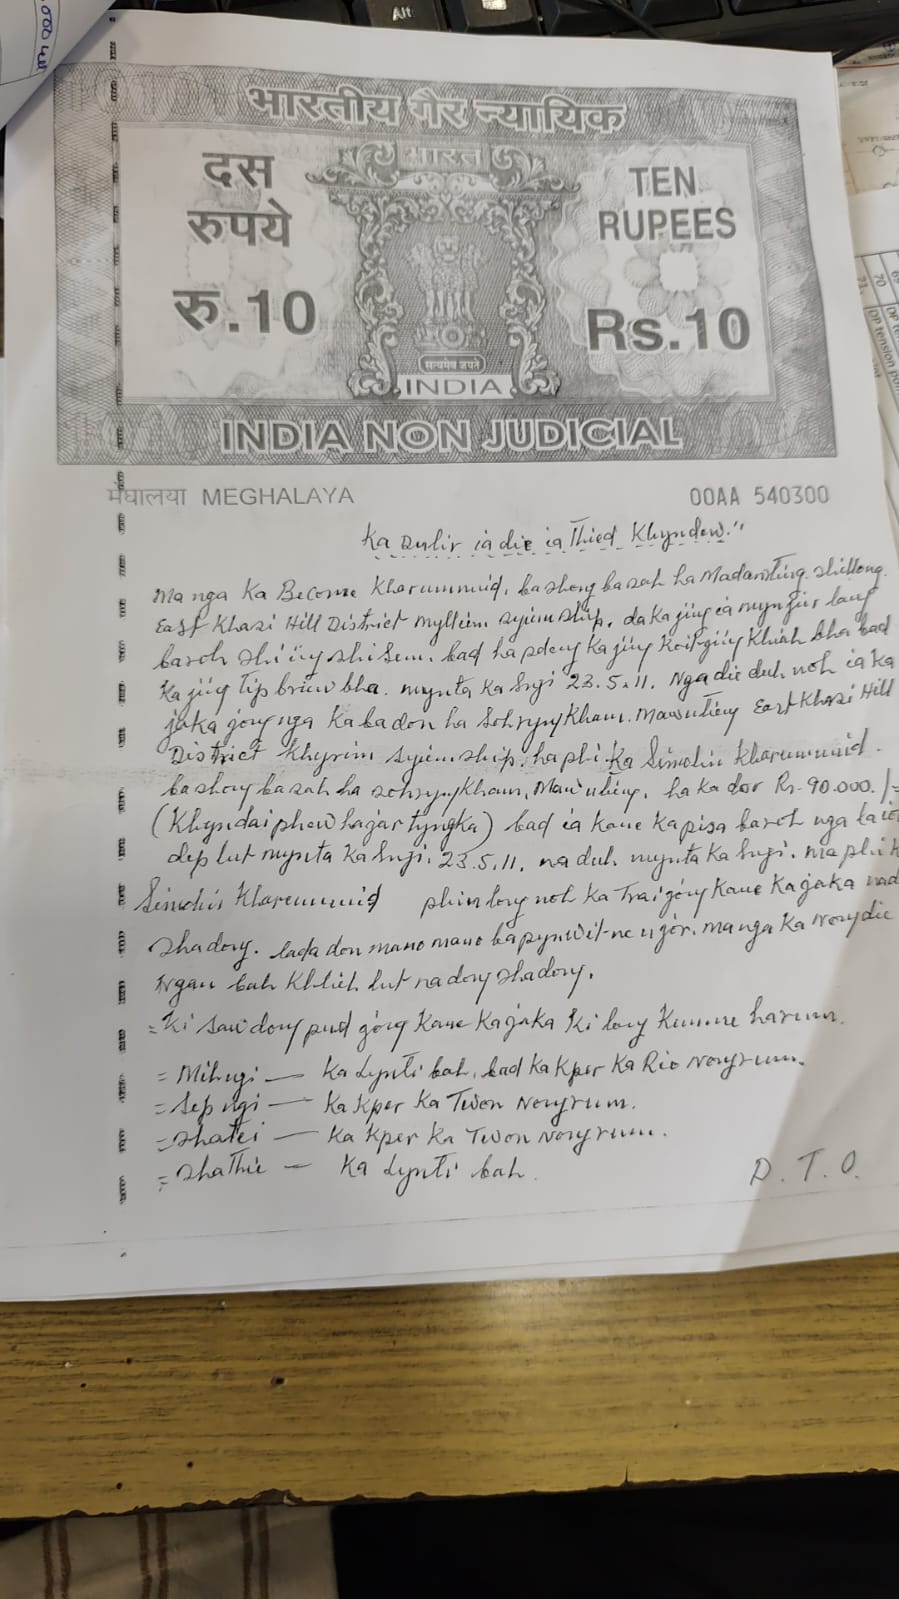 भारतीय गैर न्यायिक
भारत
दस
रुपये
रु.10
TEN
RUPEES
Rs.10
सत्यमेव जयते
INDIA
INDIA NON JUDICIAL
मेघालया MEGHALAYA
00AA 540300
Ka Dulir ia die ia Thied Khyndew."
Ma nga Ka Become Kharummuid, ba shong basah ha Madanrting. Shillong.
East Khasi Hill District Mylliem Syiemship. da ka jing ia mynjur lang
baroh shi iing shi sem. bad ha pdeng Ka jing Koit jing Khiah bha bad
Ka jing tip briew bha. mynta Ka Sngi 23.5.11. Nga die duh noh ia ka
jaka jong nga Ka ba don ha Sohryngkham. Mawubing East Khasi Hill
District Khyrim Syiemship. ha phi Ka Simolin Kharummuid.
ba shong basah ha Sohryngkham, Mawubing. ha ka dor Rs. 90.000./=
(Khyndai phew hajar tyngka) bad ia kane ka pisa baroh nga la ioh
dep lut mynta Ka Sngi. 23.5.11. na duh mynta Ka Sngi. ma phi K
Simolin Kharummuid phin long noh Ka Trai jong Kane Ka jaka nad
Shadong. lada don mano mano ba pynwit ne ujor. ma nga Ka Nongdie
Ngan bah Khlieh lut nadong shadong.
= Ki sawdong pud jong Kane Ka jaka Ki long Kumne harum.
= Mihngi — Ka Lynti bah, bad Ka Kper Ka Rio Nongrum.
= Sepngi — Ka Kper Ka Twon Nongrum.
= Shatei — Ka Kper Ka Twon Nongrum.
= Shathie — Ka Lynti bah.
P. T. O.
Alt
70
71
DP tension